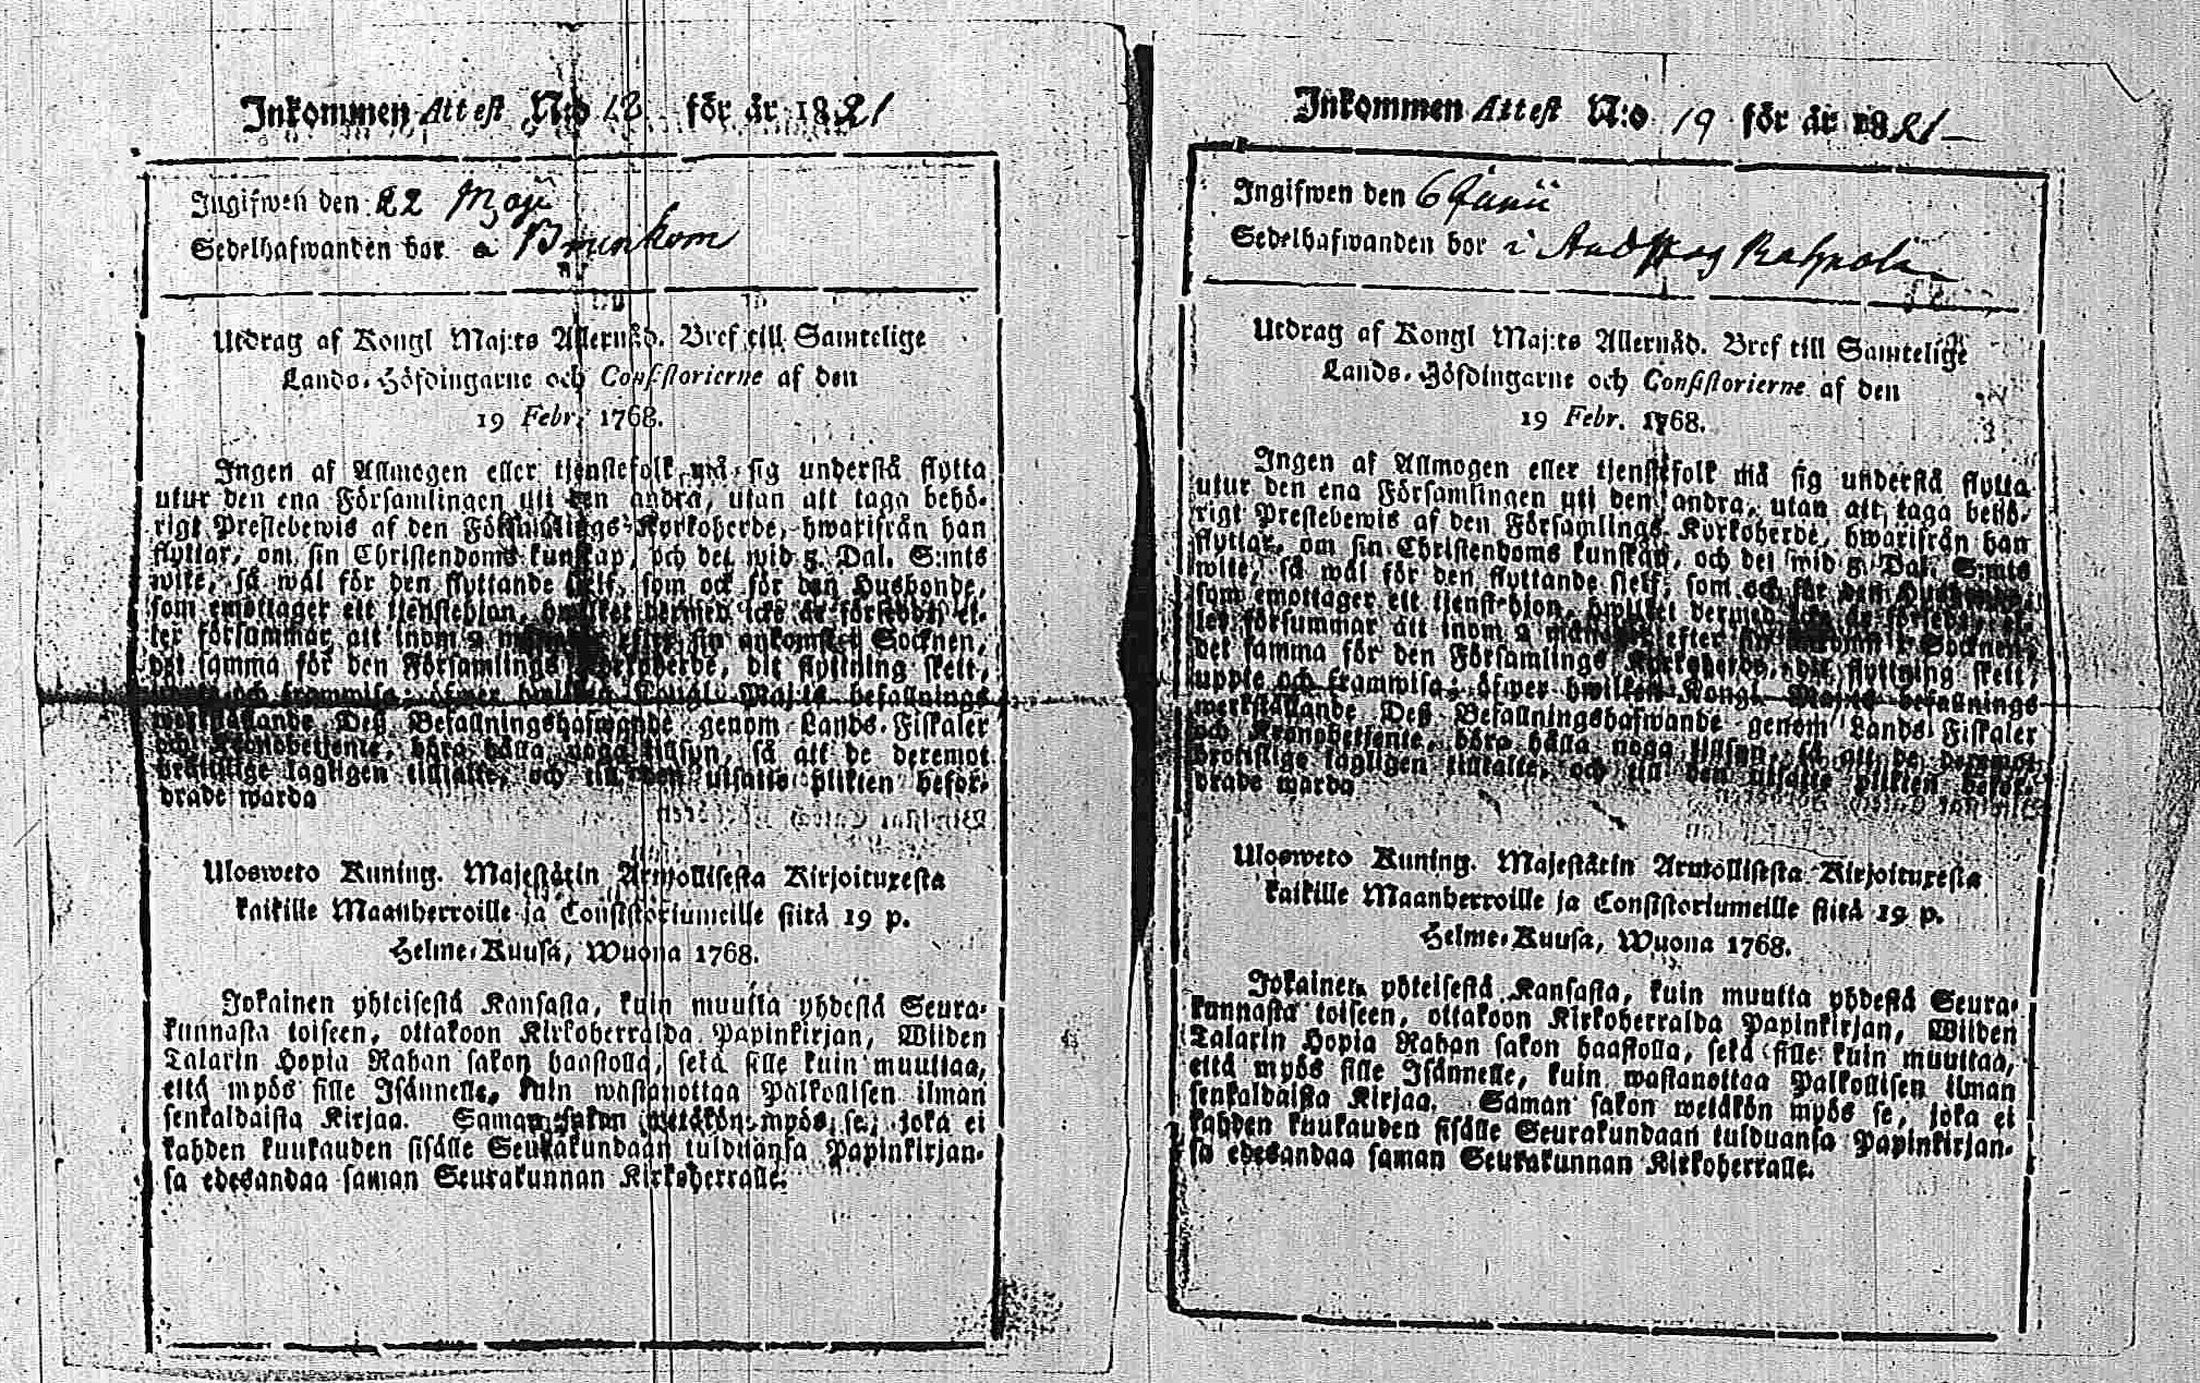 Inkommen Attest N:o 18 för år 1821
Ingifwen den 22 Maji
Sedelhafwanden bor a Brunkom
Utdrag af Kongl Maj:ts Allernåd. Bref till Samtelige
Lands-Höfdingarne och Consistorierne af den
19 Febr. 1768.
Ingen af Allmogen eller tjenstefolk må sig understå flytta
utur den ena Församlingen uti den andra, utan att taga behö-
rigt Prestebewis af den Församlings-Kyrkoherde, hwarifrån han
flyttar, om sin Christendoms kunskap, och det wid 5 Dal. S:mts
wite, så wäl för den flyttande sielf, som ock för den Husbonde,
som emottager ett tjenstehjon, hwilket dermed icke är försedt, el-
ler försummar att inom 2 månader efter sin ankomst i Socknen,
det samma för den Församlings Kyrkoherde, dit flyttning skett,
upte och framwisa; öfwer hwilken Kongl. Maj:ts befallnings
werkställande Deß Befallningshafwande genom Lands-Fiskaler
och Kronobetjente, böra hålla noga tillsyn, så att de deremot
brottslige lagligen tilltalte, och till den utsatte plikten befor-
drade warda
Ulosweto Kuning. Majestätin Armollisesta Kirjoituxesta
kaikille Maanherroille ja Consistoriumeille siitä 19 p.
Helme-Kuusa, Wuona 1768.
Jokainen yhteisestä Kansasta, kuin muutta yhdestä Seura-
kunnasta toiseen, ottakoon Kirkoherralda Papinkirjan, Wiiden
Talarin Hopia Rahan sakon haastolla, sekä sille kuin muuttaa,
että myös sille Isännelle, kuin wastanottaa Palkollisen ilman
senkaldaista Kirjaa. Saman sakon wetäkön myös se, joka ei
kahden kuukauden sisälle Seurakundaan tulduansa Papinkirjan-
sa edesandaa saman Seurakunnan Kirkoherralle.
Inkommen Attest N:o 19 för år 1821
Ingifwen den 6 Junii
Sedelhafwanden bor i
Utdrag af Kongl Maj:ts Allernåd. Bref till Samtelige
Lands-Höfdingarne och Consistorierne af den
19 Febr. 1768.
Ingen af Allmogen eller tjenstefolk må sig understå flytta
utur den ena Församlingen uti den andra, utan att taga behö-
rigt Prestebewis af den Församlings Kyrkoherde, hwarifrån han
flyttar, om sin Christendoms kunskap, och det wid 5 Dal. S:mts
wite, så wäl för den flyttande sielf, som och för den Husbonde,
som emottager ett tjenstehjon, hwilket dermed icke är försedt, el-
ler försummar att inom 2 månader efter sin ankomst i Socknen,
det samma för den Församlings Kyrkoherde, dit flyttning skett,
upte och framwisa; öfwer hwilken Kongl. Maj:ts befallnings
werkställande Deß Befallningshafwande genom Lands Fiskaler
och Kronobetjente, böra hålla noga tillsyn, så att de deremot
brottslige lagligen tilltalte, och till den utsatte plikten befor-
drade warda
Ulosweto Kuning. Majestätin Armollisesta Kirjoituxesta
kaikille Maanherroille ja Consistoriumeille siitä 19 p.
Helme-Kuusa, Wuona 1768.
Jokainen yhteisestä Kansasta, kuin muutta yhdestä Seura-
kunnasta toiseen, ottakoon Kirkoherralda Papinkirjan, Wiiden
Talarin Hopia Rahan sakon haastolla, sekä sille kuin muuttaa,
että myös sille Isännelle, kuin wastanottaa Palkollisen ilman
senkaldaista Kirjaa. Saman sakon wetäkön myös se, joka ei
kahden kuukauden sisälle Seurakundaan tulduansa Papinkirjan-
sa edesandaa saman Seurakunnan Kirkoherralle.